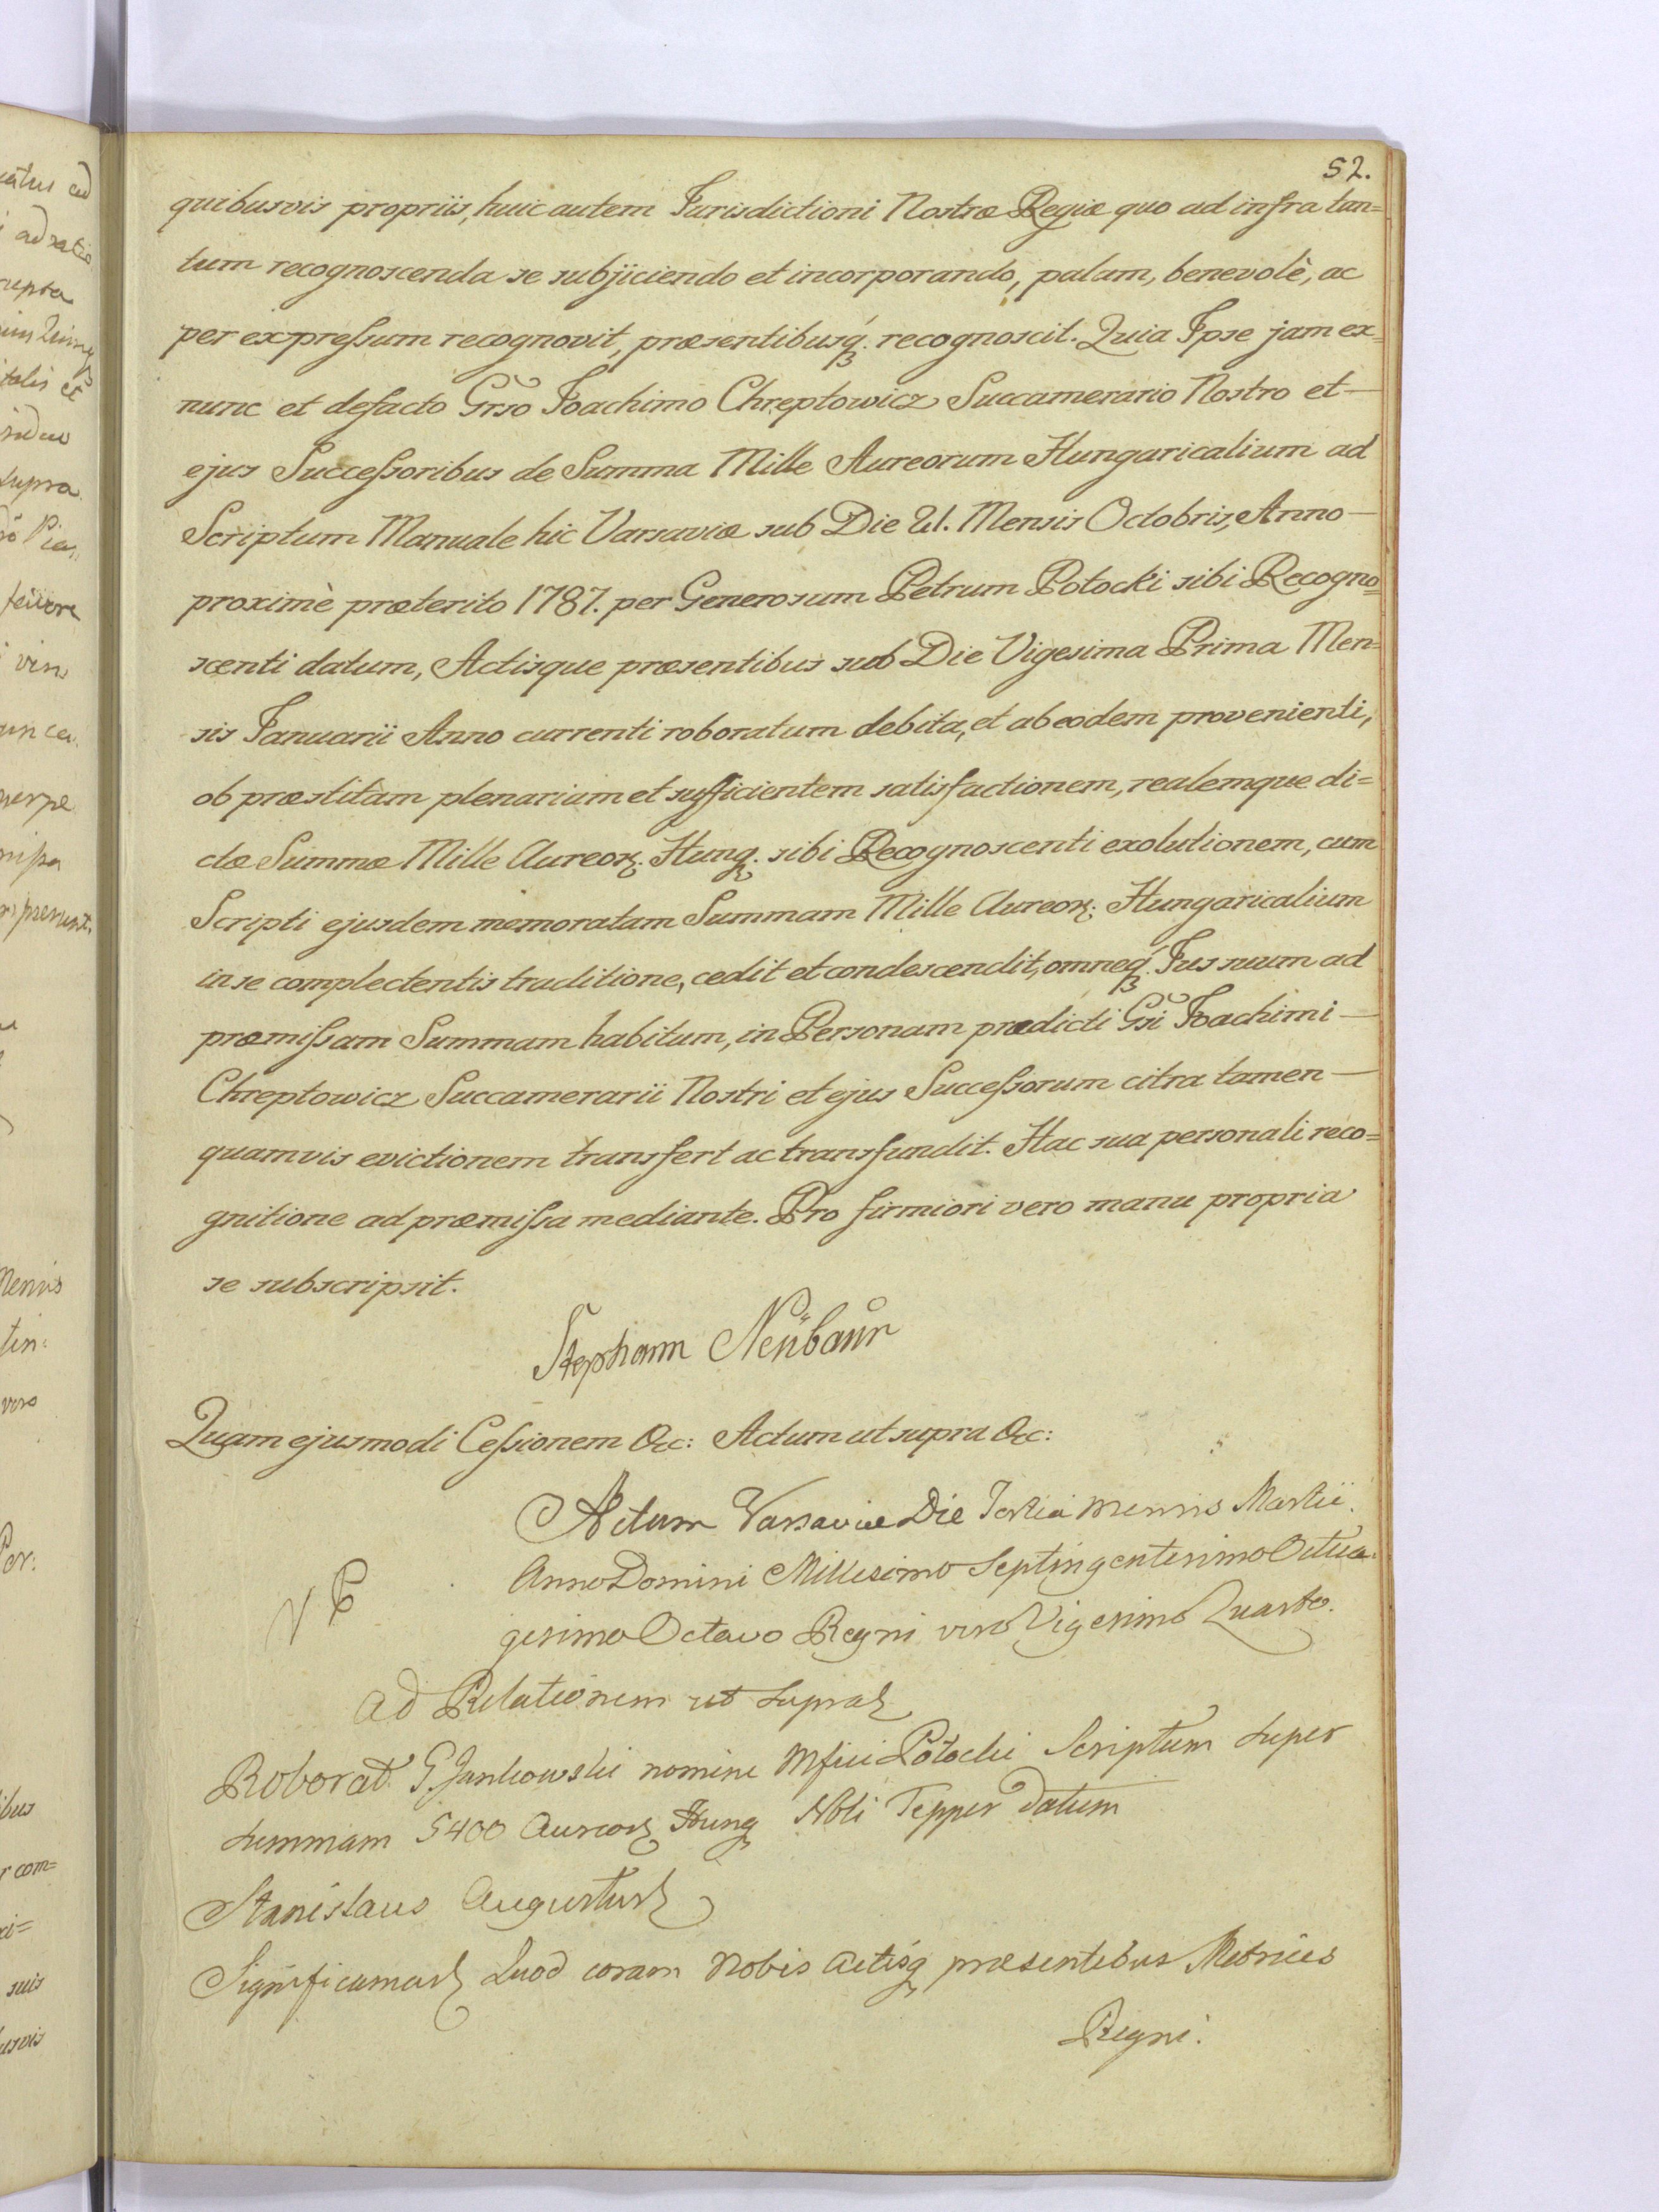 52.
quibusvis propriis, huic autem Jurisdictioni Nostræ Regiæ quo ad infra tan=
tum recognoscenda se subjiciendo et incorporando, palam, benevolè, ac
per expressum recognovit, præsentibusq. recognoscit. Quia Ipse jam ex=
nunc et defacto Grso Joachimo Chreptowicz Succamerario Nostro et —
ejus Successoribus de Summa Mille Aureorum Hungaricalium ad
Scriptum Manuale hic Varsaviæ sub Die Mensis Octobris, Anno —
proximè præterito 1787. per Generosum Petrum Potocki sibi Recogno=
scenti datum, Actisque præsentibus sub Die Vigesima Prima Men=
sis Januarii Anno currenti roboratum debita, et ab eodem provenienti,
ob præstitam plenariam et sufficientem satisfactionem, realemque di=
ctæ Summæ Mille Aureor. Hung. sibi Recognoscenti exolutionem, cum
Scripti ejusdem memoratam Summam Mille Aureor: Hungaricalium
in se complectentis traditione, cedit et condescendit, omneq. Jus suum ad
præmissam Summam habitum, in Personam prædicti Gsi Joachimi —
Chreptowicz Succamerarii Nostri et ejus Successorum citra tamen —
quamvis evictionem transfert ac transfundit. Hac sua personali reco=
gnitione ad præmissa mediante. Pro firmiori vero manu propria
se subscripsit.
Stephann Neübaür
Quam ejusmodi Cessionem &c: Actum ut supra &c:
Actum Varsaviæ Die Tertia Mensis Martii.
Anno Domini Millesimo Septingentesimo Octua=
gesimo Octavo Regni vero Vigesimo Quarto.
Ad Relationem ut supra
Roborat. G. Jankowski nomine Mfici Potocki Scriptum super
summam 5400 Aureor Hung Nbli Tepper Datum
Stanislaus Augustus
Significamus Quod coram Nobis Actisq præsentibus Metrices
Regni.